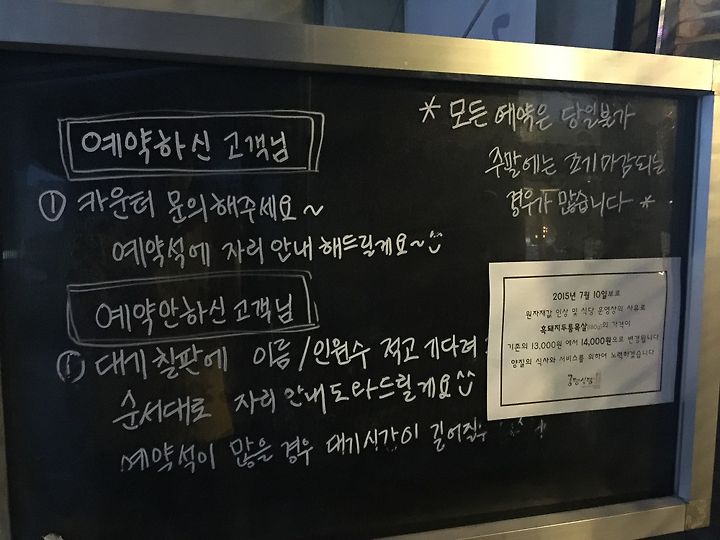 예약하신 고객님
① 카운터 문의해주세요~
예약석에 자리 안내해드릴게요~
예약안하신 고객님
① 대기 칠판에 이름/인원수 적고 기다려
순서대로 자리 안내도와드릴게요
예약석이 많을 경우 대기시간이 길어집
* 모든 예약은 당일불가
주말에는 조기마감되는
경우가 많습니다 *
2015년 7월 10일부로
원자재값 인상 및 식당 운영상의 사유로
흑돼지두툼목살(180g)의 가격이
기존의 13,000원 에서 14,000원으로 변경됩니다
양질의 식사와 서비스를 위하여 노력하겠습니다